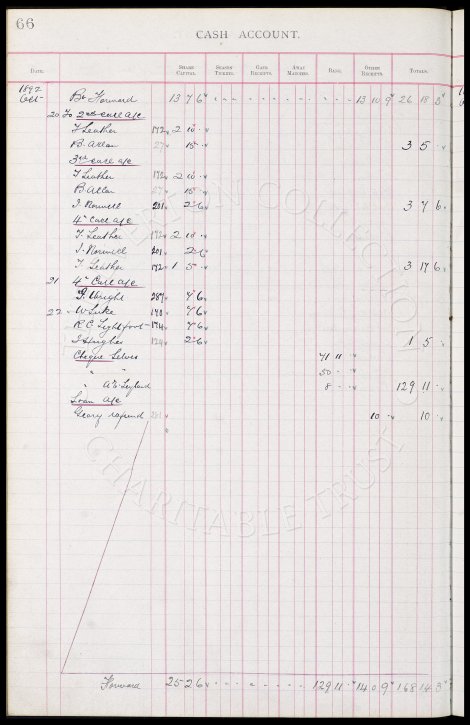 66
CASH ACCOUNT.
DATE. SHARE CAPITAL. SEASON TICKETS. GATE RECEIPTS. AWAY MATCHES. BANK. OTHER RECEIPTS. TOTALS.
1892
Oct Bt Forward 13 7 6 13 10 9 26 18 3
20 To 2nd call a/c
T Leather 172 2 10
B. Allan 27 15 3 5
3rd call a/c
T Leather 172 2 10
B Allan 27 15
J. Norwell 201 2 6 3 7 6
4th Call a/c
T. Leather 172 2 10
J. Norwell 201 2 6
T. Leather 172 1 5 3 17 6
21 4th Call a/c
Wright 287 7 6
22 W Luke 140 7 6
R C Lightfoot 174 7 6
J Hughes 124 2 6 1 5
Cheque Selves 71 11
" " 50
" A E Leyland 8 129 11
Loan a/c
Geary refund 281 10 10
Forward 25 2 6 129 11 14 0 9 168 14 3
EVERTON COLLECTION
CHARITABLE TRUST